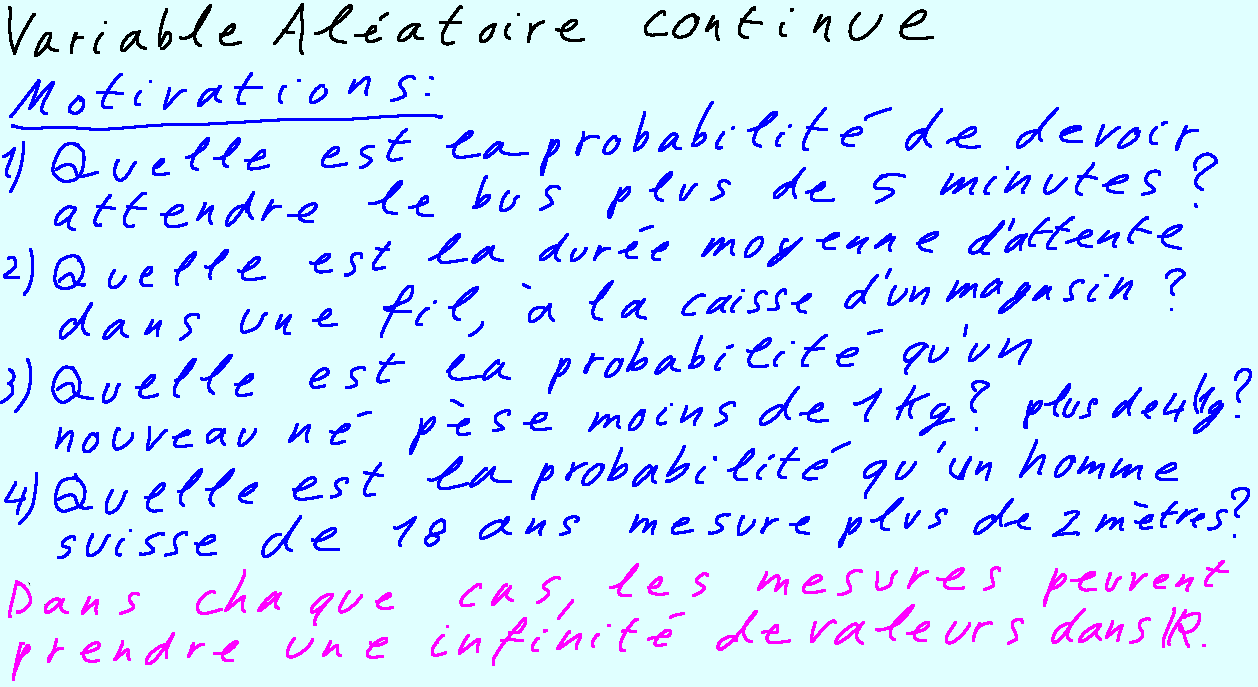 Variable Aléatoire continue
Motivations:
1) Quelle est la probabilité de devoir
attendre le bus plus de 5 minutes?
2) Quelle est la durée moyenne d'attente
dans une fil, à la caisse d'un magasin?
3) Quelle est la probabilité qu'un
nouveau né pèse moins de 1 kg? plus de 4 kg?
4) Quelle est la probabilité qu'un homme
suisse de 18 ans mesure plus de 2 mètres?
Dans chaque cas, les mesures peuvent
prendre une infinité de valeurs dans ℝ.